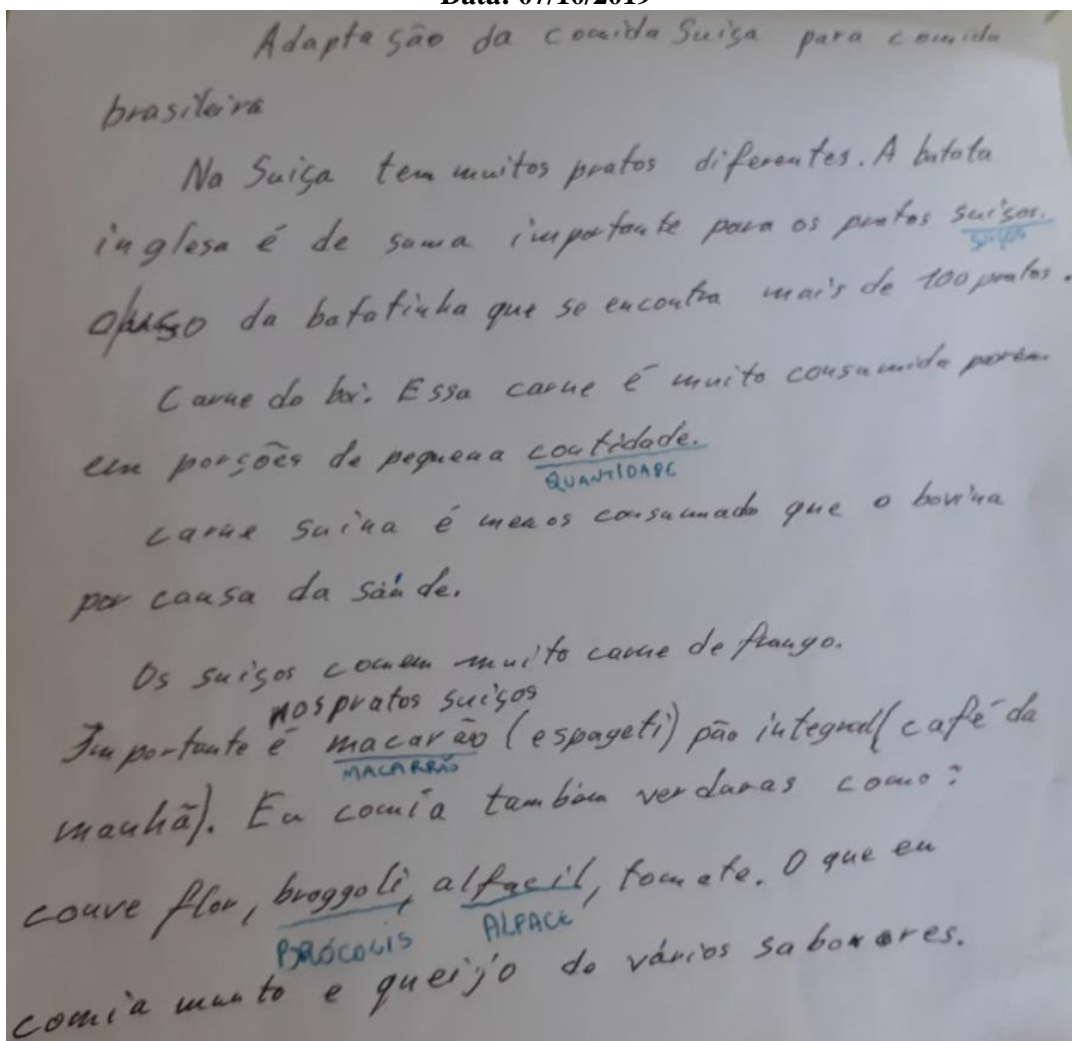 Data: 07/10/2019
Adaptação da comida Suiça para comida
brasileira
Na Suiça tem muitos pratos diferentes. A batata
inglesa é de suma importante para os pratos suiços.
da batatinha que se encontra mais de 100 pratos.
Carne do boi. Essa carne é muito consumida porém
em porções de pequena contidade.
QUANTIDADE
carne suina é menos consumado que o bovina
por causa da saúde.
Os suiços comem muito carne de frango.
nos pratos suiços
Importante é macarão (espageti) pão integral (café da
MACARRÃO
manhã). Eu comia tambem verduras como:
couve flor, broggoli, alfacil, tomate. O que eu
BRÓCOLIS ALFACE
comia munto e queijo do vários saborores.